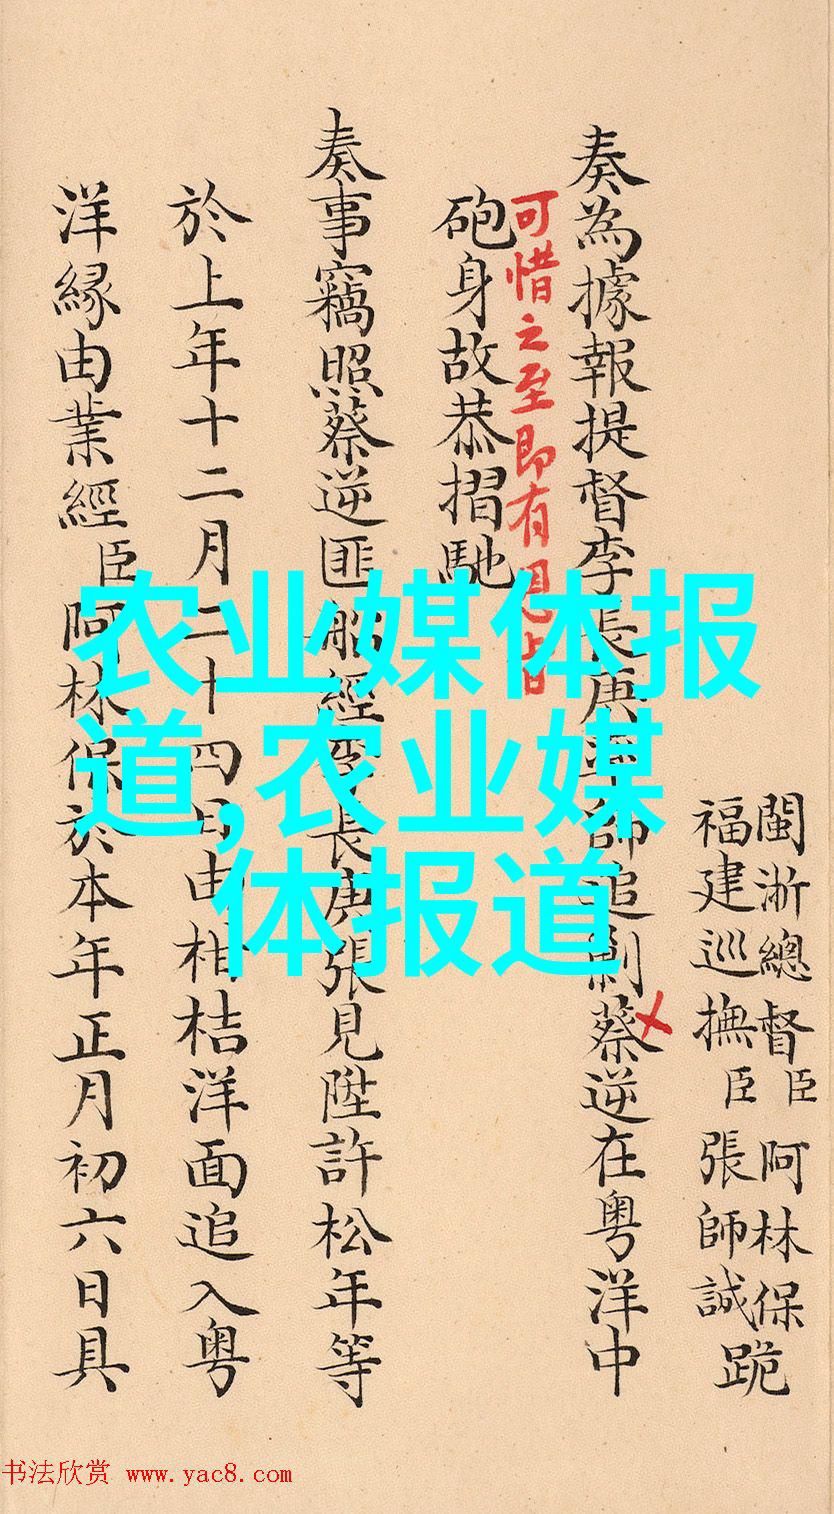 閩浙總督臣阿林保
福建巡撫臣張師誠跪
奏為據報提督李長庚師追剿蔡逆在粵洋中
可惜之至即有旨
砲身故恭摺馳
奏事竊照蔡逆匪船經李長庚張見陞許松年等
於上年十二月二十四日由柑桔洋面追入粵
洋緣由業經臣阿林保於本年正月初六日具
农业媒体报
道,农业媒
体报道
书法欣赏 www.yac8.com